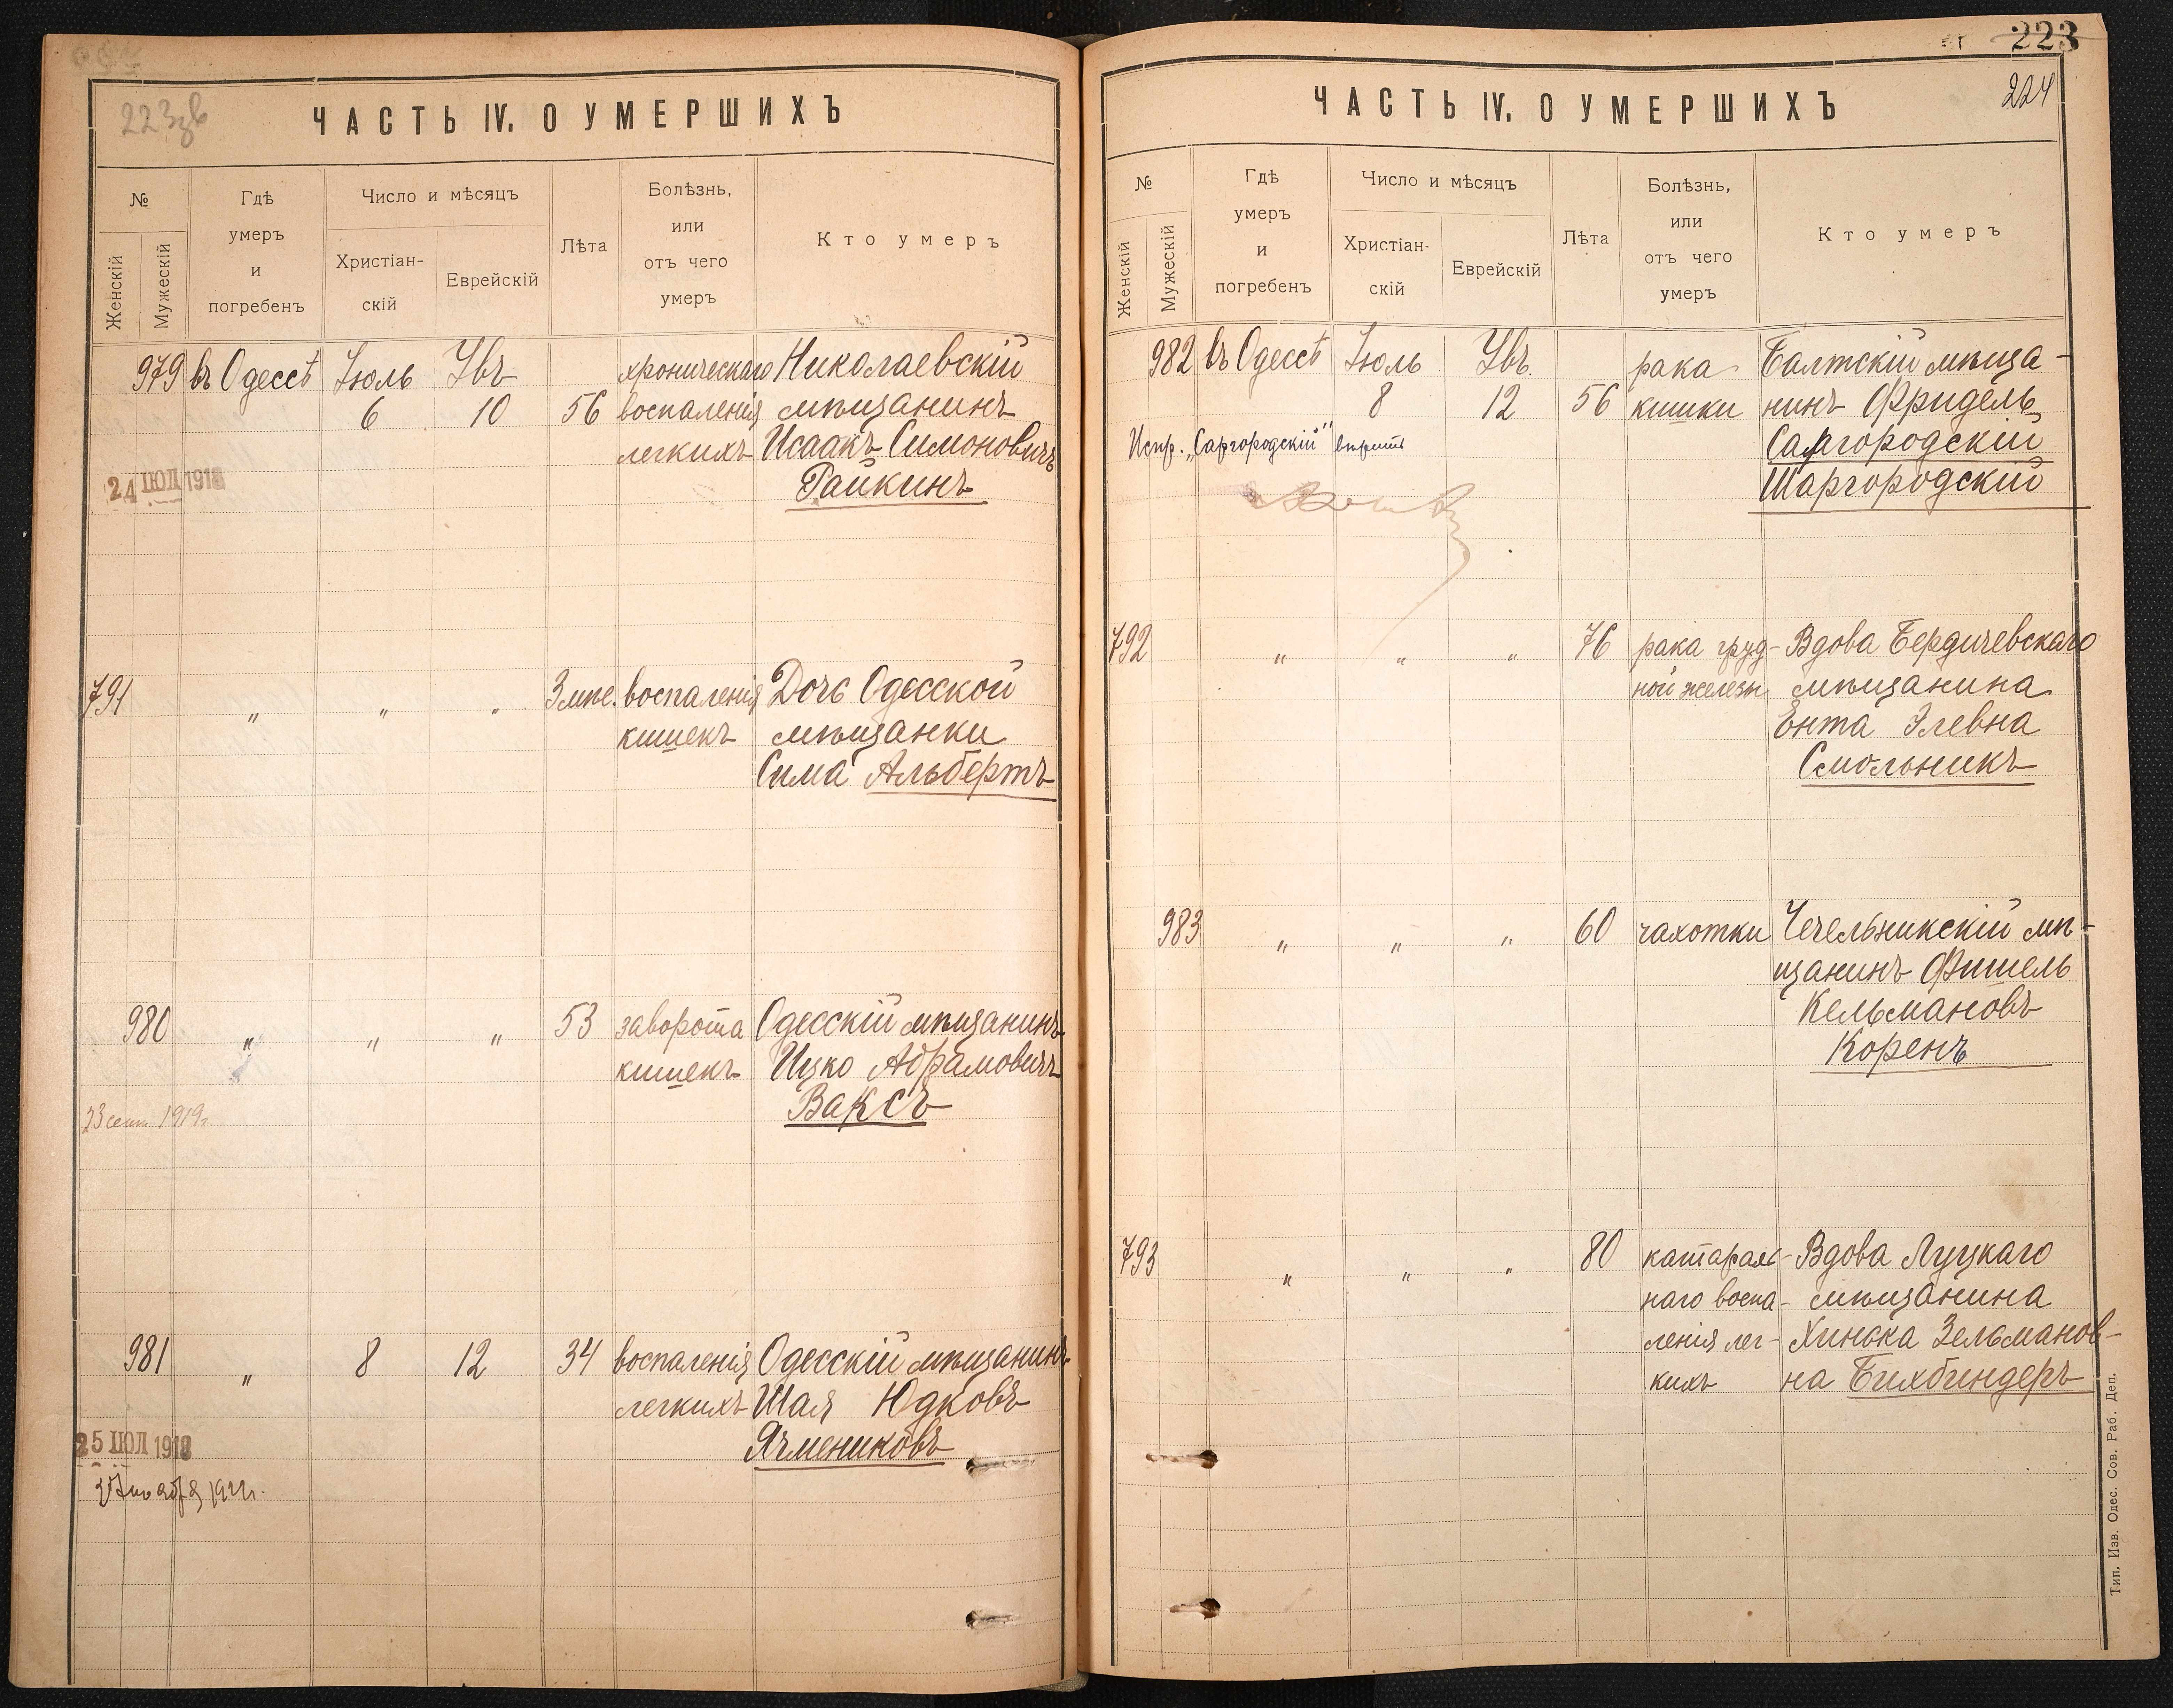 223зв
ЧАСТЬ IV. О УМЕРШИХЪ
№
Женскій
Мужескій
Гдѣ
умеръ
и
погребенъ
Число и мѣсяцъ
Христіан-
скій
Еврейскій
Лѣта
Болѣзнь,
или
отъ чего
умеръ
Кто умеръ
979 въ Одессѣ Іюль Увъ хроническаго Николаевскій
6 10 56 воспаленія мѣщанинъ
легкихъ Исаакъ Симоновичъ
Райкинъ
24 ІЮЛ 191
791 " " " 3 мѣс. воспаленія Дочь Одесской
кишекъ мѣщанки
Сима Альбертъ
980 " " " 53 заворота Одесскій мѣщанинъ
кишекъ Ицко Абрамовичъ
Ваксъ
23 сент 1919г.
981 " 8 12 34 воспаленія Одесскій мѣщанинъ
легкихъ Шая Юдковъ
Ячмениковъ
25 ІЮЛ 191
223
224
ЧАСТЬ IV. О УМЕРШИХЪ
№
Женскій
Мужескій
Гдѣ
умеръ
и
погребенъ
Число и мѣсяцъ
Христіан-
скій
Еврейскій
Лѣта
Болѣзнь,
или
отъ чего
умеръ
Кто умеръ
982 въ Одессѣ Іюль Увъ. рака Балтскій мѣща-
8 12 56 кишки нинъ Фридель
Саргородскій
Испр. „Саргородскій" вѣрить
Шаргородскій
792 " " " 76 рака груд- Вдова Бердичевскаго
ной железы мѣщанина
Ента Элевна
Смольникъ
983 " " " 60 чахотки Чечельникскій мѣ-
щанинъ Фишель
Кельмановъ
Коренъ
793 " " " 80 катарал- Вдова Луцкаго
наго воспа- мѣщанина
ленія лег- Хинька Зельманов-
кихъ на Бихбиндеръ
Тип. Изв. Одес. Сов. Раб. Деп.